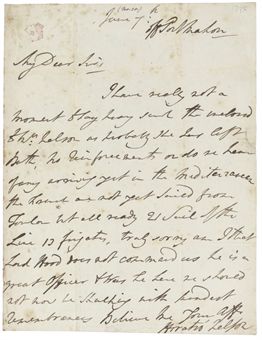 June 7th
off Port Mahon
My Dear Sir
I have really not a
moment to say
Mrs. Nelson as probably she has left
Bath. No Reinforcements or do we hear
of any arriving yet in the Mediterranean
the French are not yet sailed from
Toulon but all ready 21 Sail of the
Line 13 frigates, truly sorry am I that
Lord Hood does not command us he is a
great Officer & was he here we should
not now be skulking with kindest
remembrances Believe me Your Affe
Horatio Nelson